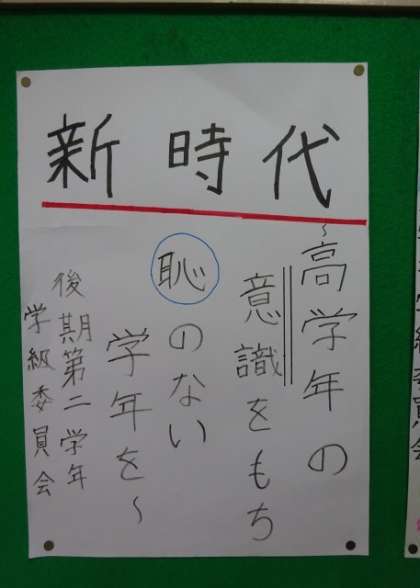 新時代
~高学年の
意識をもち
恥のない
学年を~
後期第二学年
学級委員会